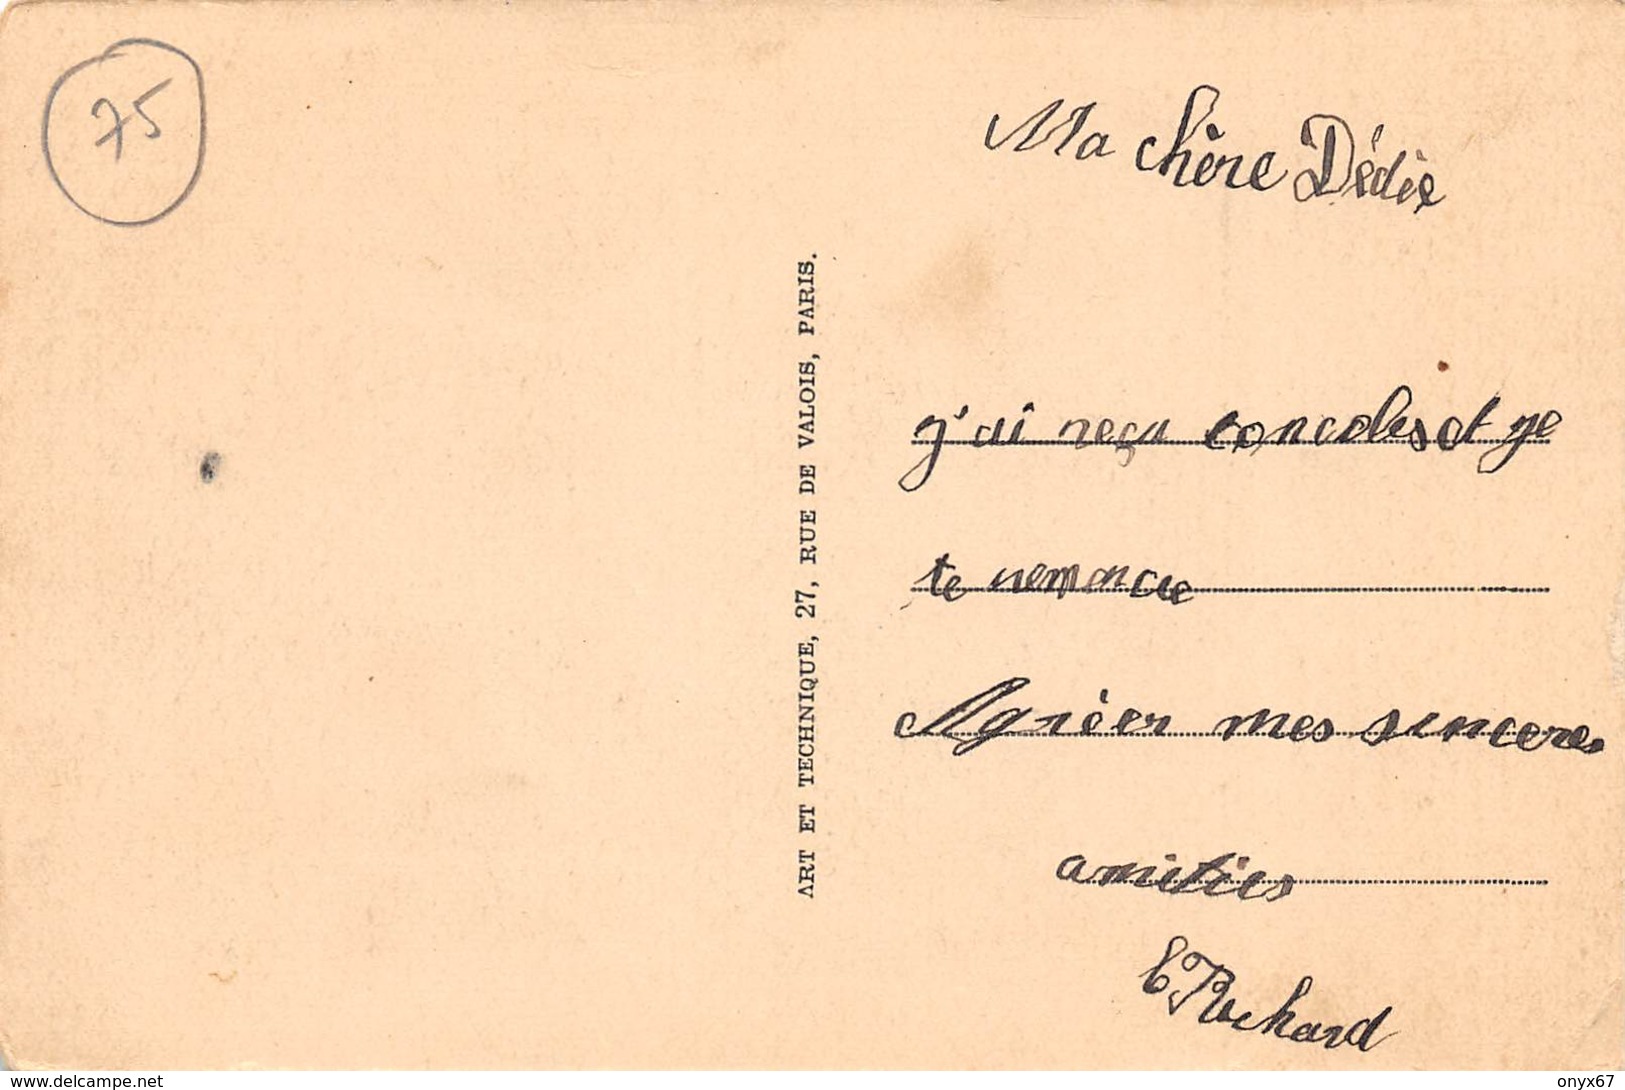 75
Ma chère Dédée
j'ai reçu et je
te remercie
Agréer mes sincères
amitiés
E Richard
ART ET TECHNIQUE, 27, RUE DE VALOIS, PARIS.
www.delcampe.net
onyx67